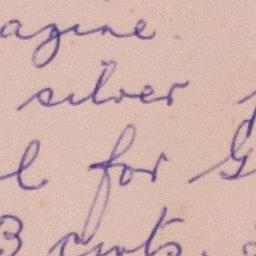 agine
silver
l for G
3 cents.